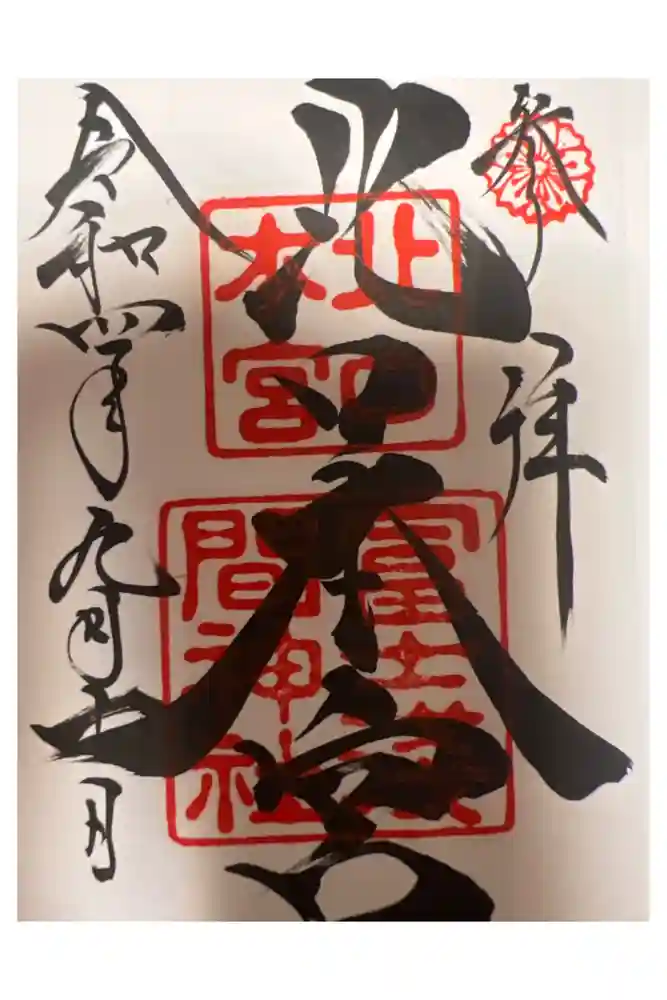 奉拝
北口本宮
北口本宮
富士淺間神社
令和四年九月十一日